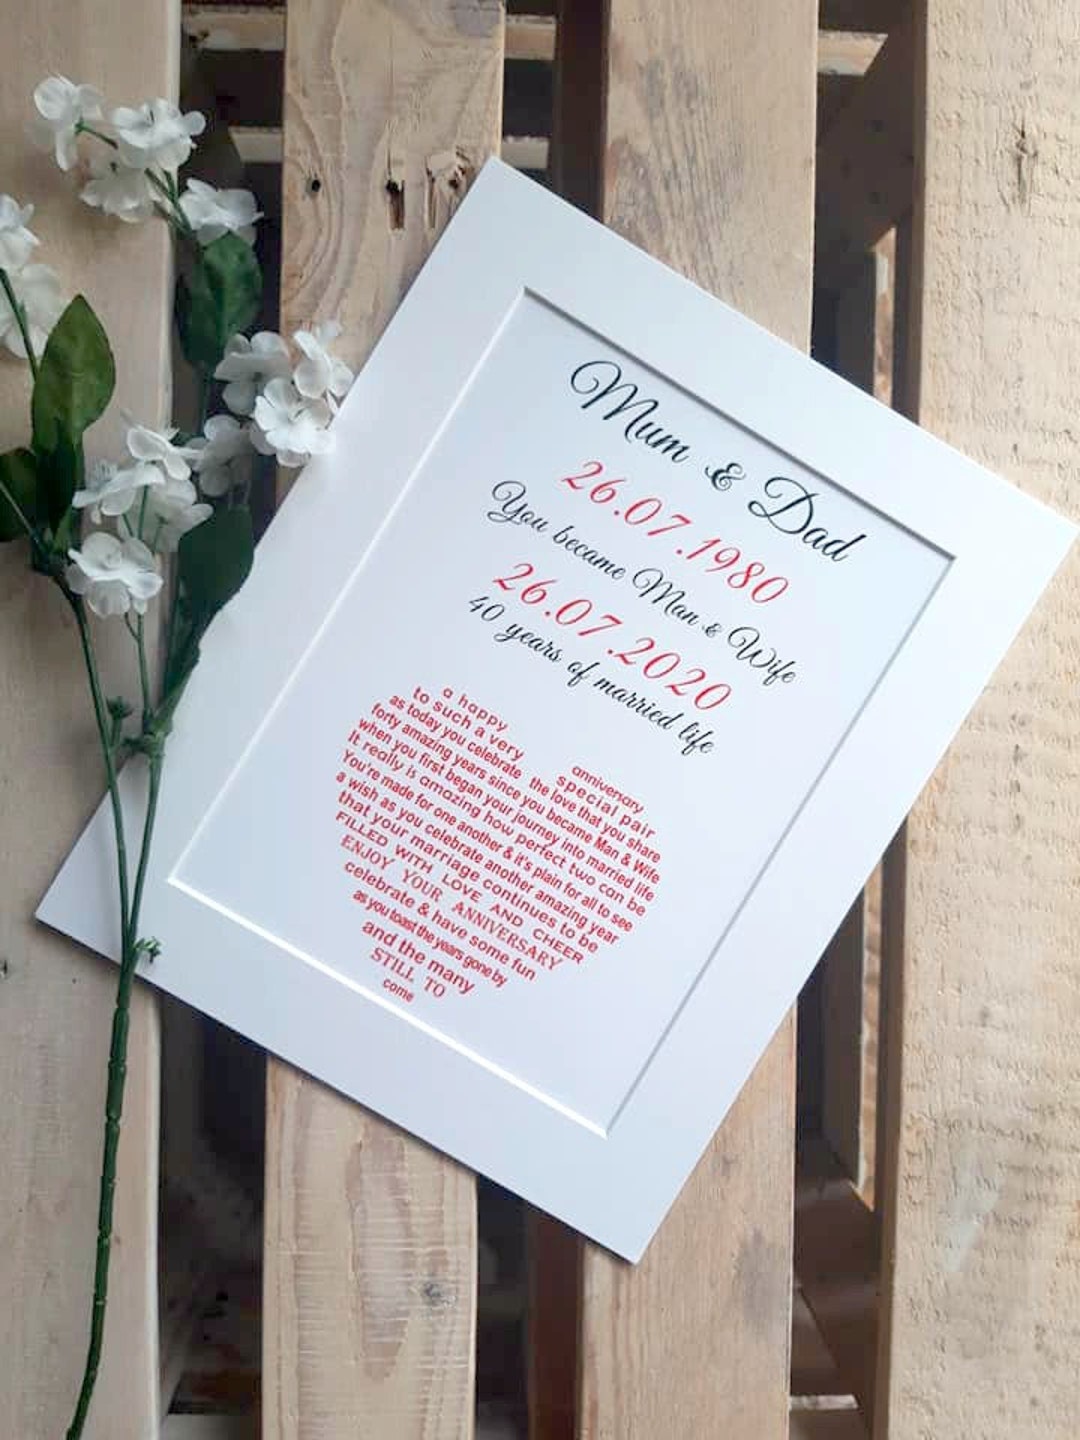 Mum & Dad
26.07.1980
You became Man & Wife
26.07.2020
40 years of married life
a happy anniversary
to such a very special pair
as today you celebrate the love that you share
forty amazing years since you became Man & Wife
when you first began your journey into married life
It really is amazing how perfect two can be
You're made for one another & it's plain for all to see
a wish as you celebrate another amazing year
that your marriage continues to be
FILLED WITH LOVE AND CHEER
ENJOY YOUR ANNIVERSARY
celebrate & have some fun
as you toast the years gone by
and the many
STILL TO
come